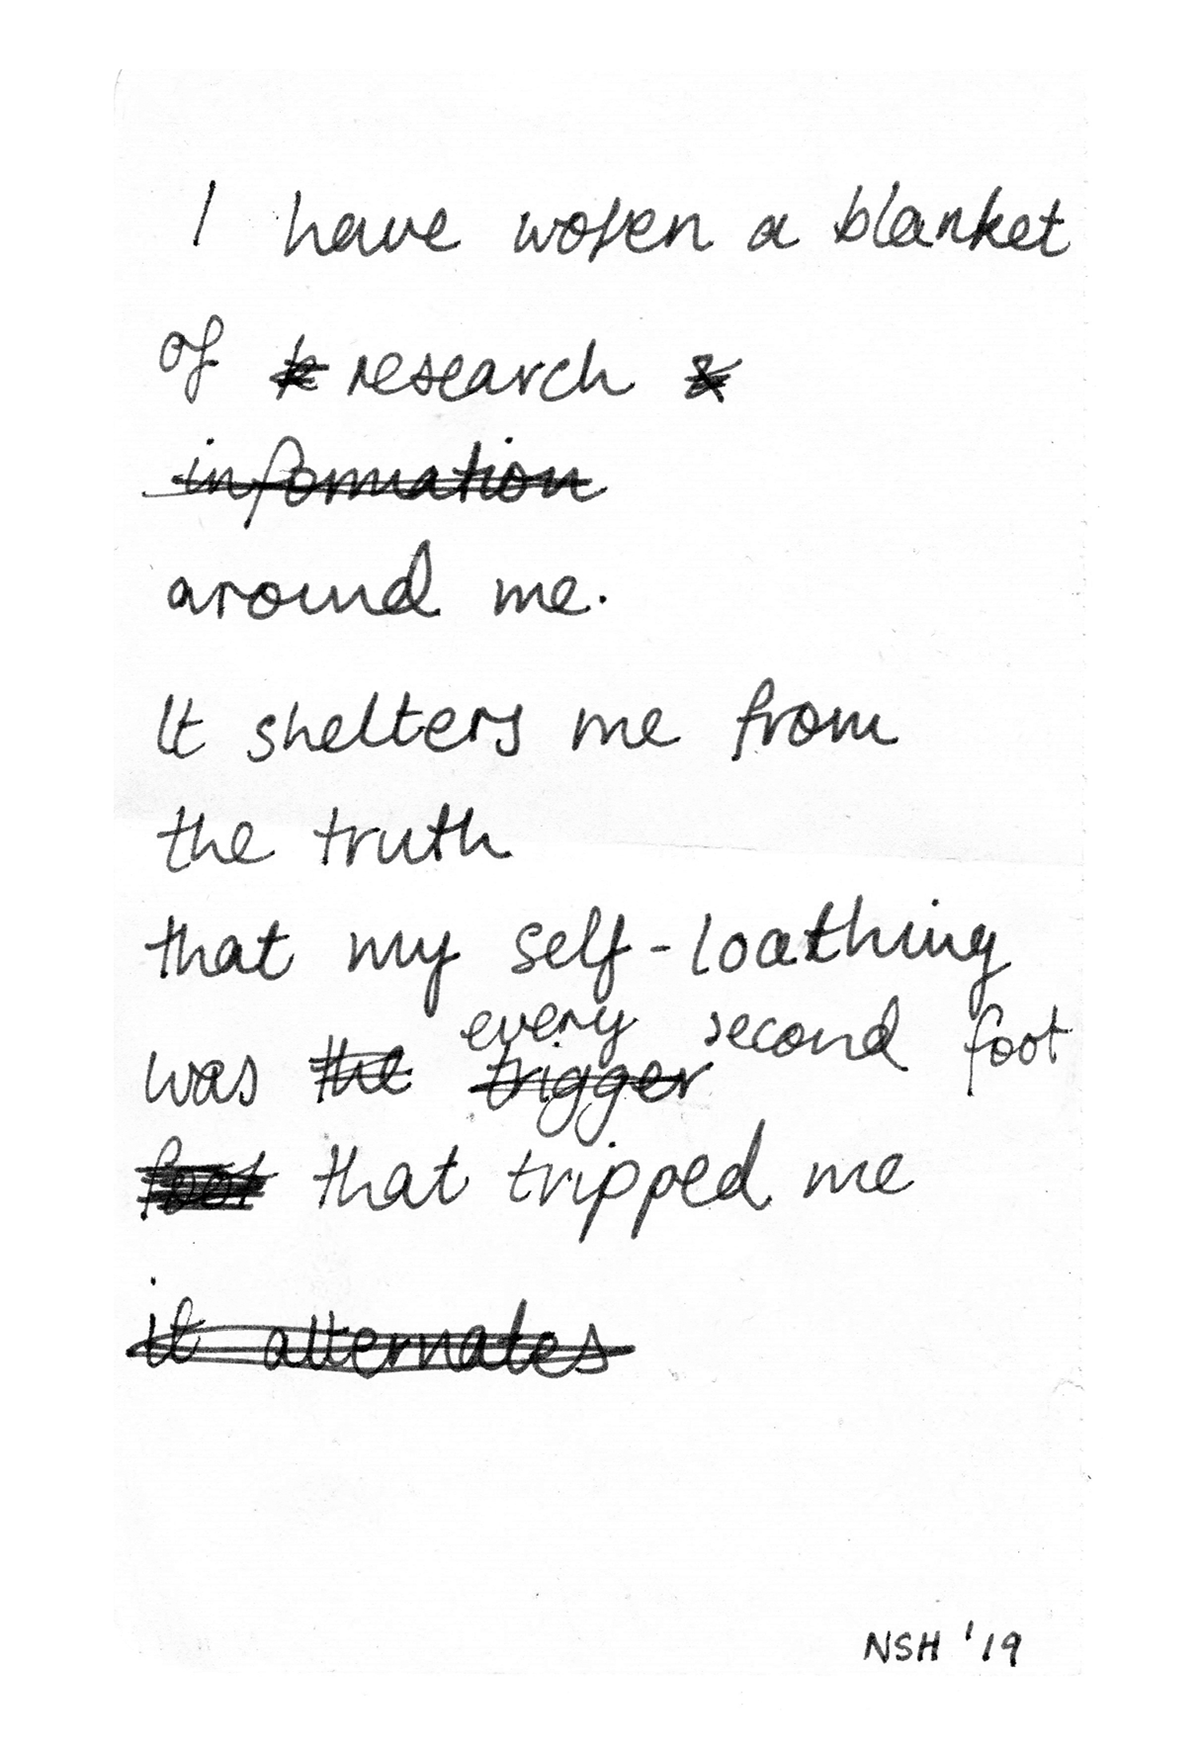 I have woven a blanket
of research &
information
around me.
It shelters me from
the truth
that my self-loathing
was the trigger every second foot
foot that tripped me
it alternates
NSH '19